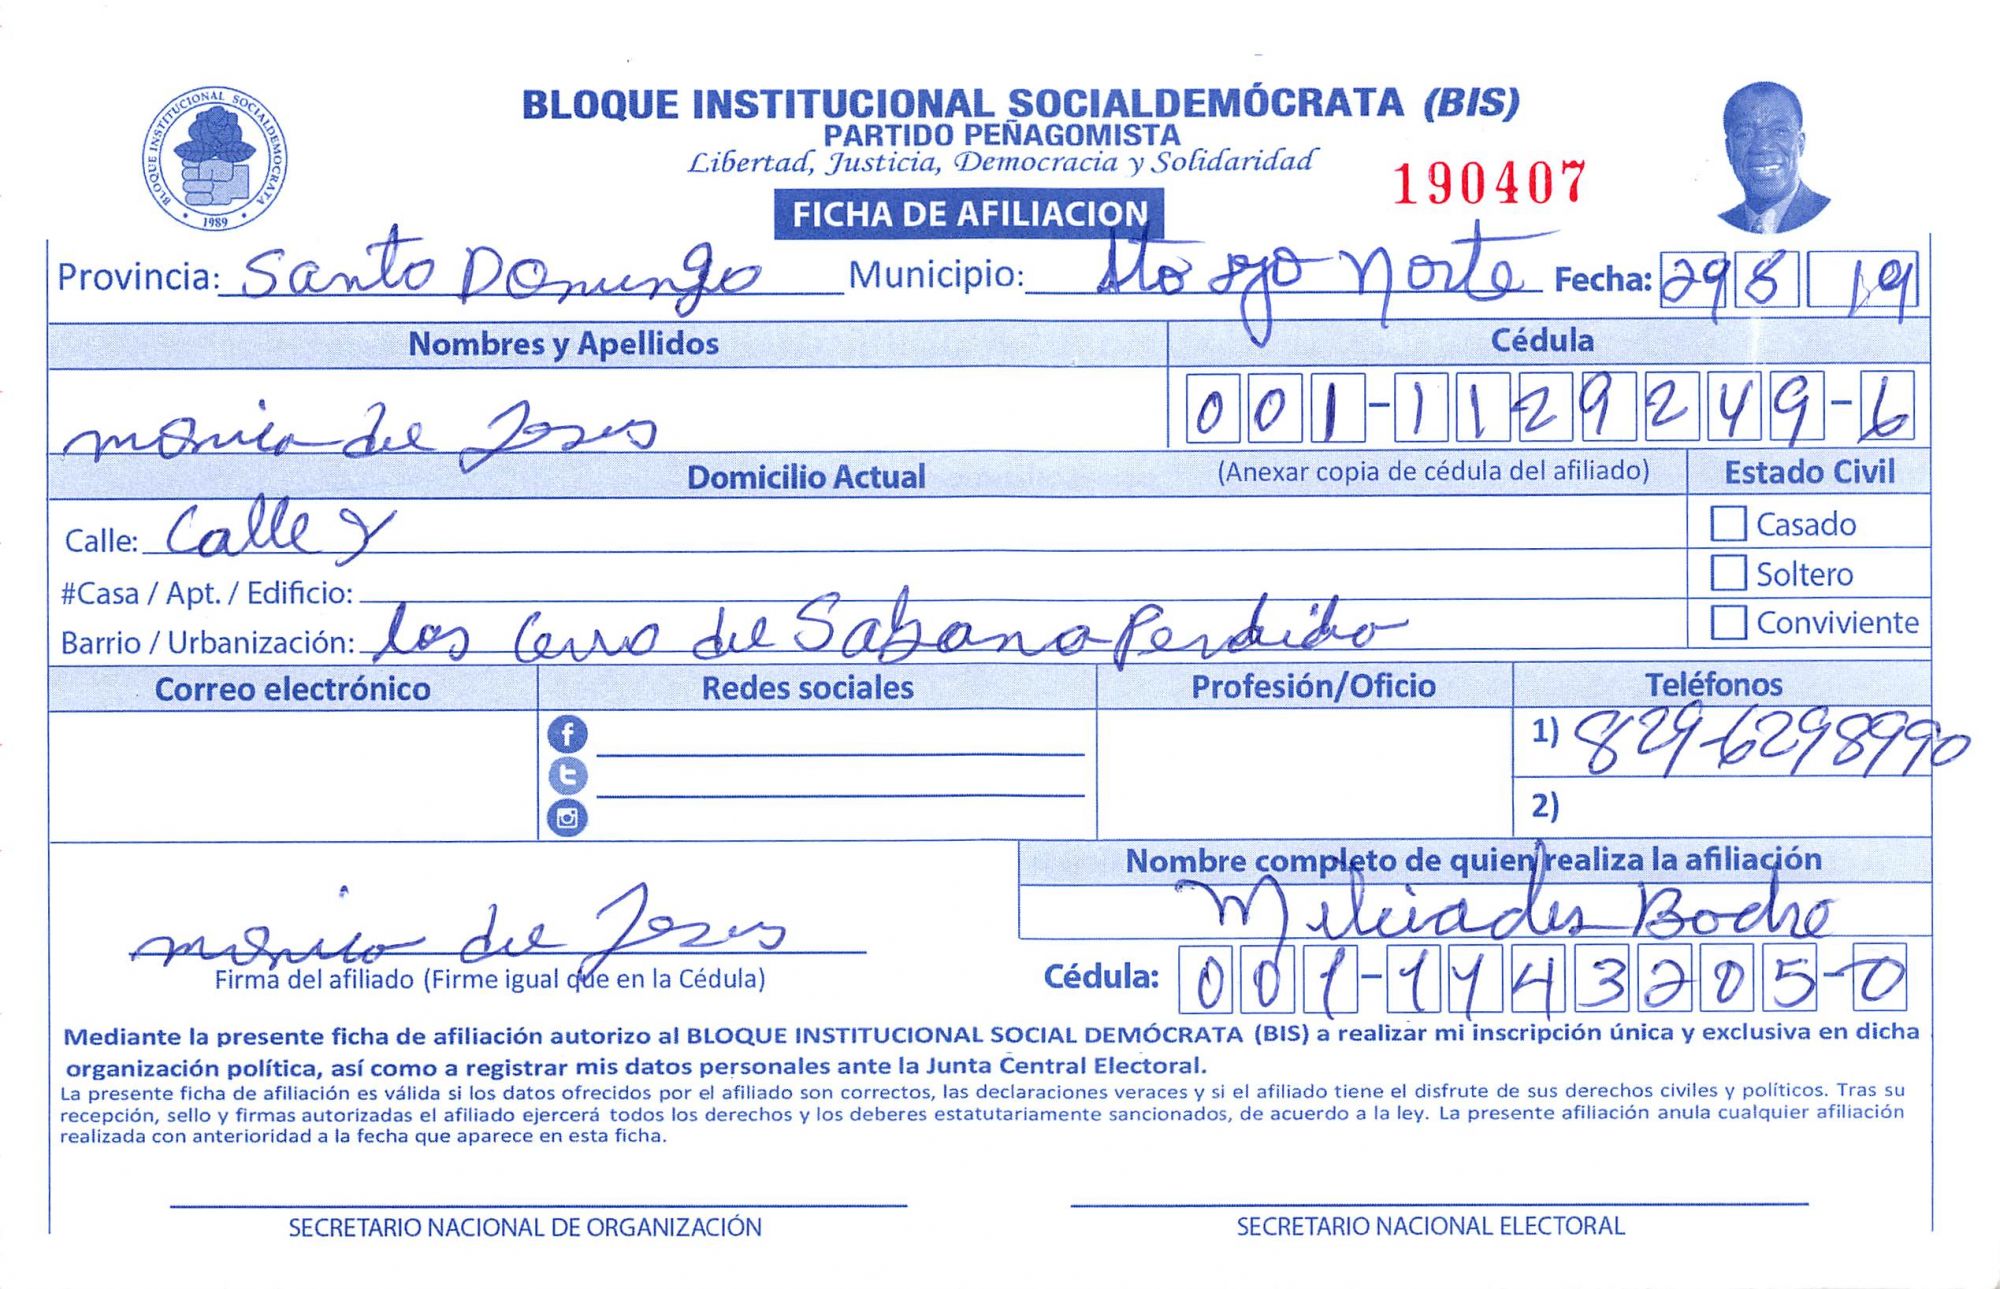 BLOQUE INSTITUCIONAL SOCIALDEMOCRATA
1989
BLOQUE INSTITUCIONAL SOCIALDEMÓCRATA (BIS)
PARTIDO PEÑAGOMISTA
Libertad, Justicia, Democracia y Solidaridad
190407
FICHA DE AFILIACION
Provincia: Santo Domingo Municipio: Sto Dgo Norte Fecha: 29 8 19
Nombres y Apellidos Cédula
monica de Jesus 001-1129249-6
Domicilio Actual (Anexar copia de cédula del afiliado) Estado Civil
Calle: Calle y Casado
#Casa / Apt. / Edificio: Soltero
Barrio / Urbanización: los Cerro de Sabana Perdida Conviviente
Correo electrónico Redes sociales Profesión/Oficio Teléfonos
1) 829-6298990
2)
Nombre completo de quien realiza la afiliación
Milciades Bodre
monica de Jesus
Firma del afiliado (Firme igual que en la Cédula) Cédula: 001-1143205-0
Mediante la presente ficha de afiliación autorizo al BLOQUE INSTITUCIONAL SOCIAL DEMÓCRATA (BIS) a realizar mi inscripción única y exclusiva en dicha
organización política, así como a registrar mis datos personales ante la Junta Central Electoral.
La presente ficha de afiliación es válida si los datos ofrecidos por el afiliado son correctos, las declaraciones veraces y si el afiliado tiene el disfrute de sus derechos civiles y políticos. Tras su
recepción, sello y firmas autorizadas el afiliado ejercerá todos los derechos y los deberes estatutariamente sancionados, de acuerdo a la ley. La presente afiliación anula cualquier afiliación
realizada con anterioridad a la fecha que aparece en esta ficha.
SECRETARIO NACIONAL DE ORGANIZACIÓN SECRETARIO NACIONAL ELECTORAL